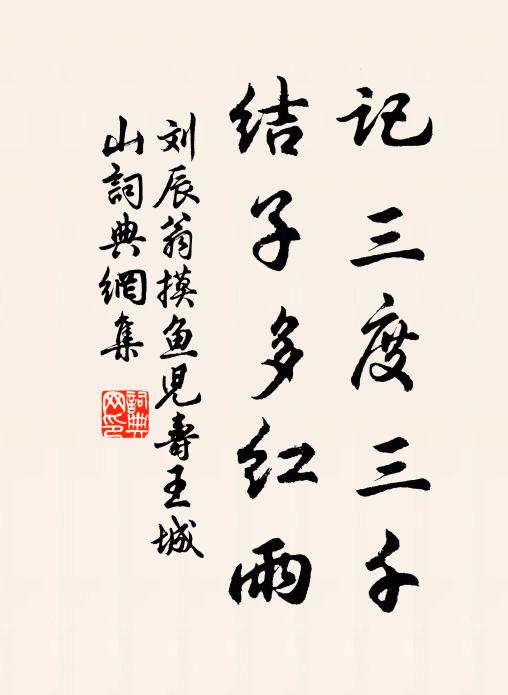 记三度三千
结子多红雨
刘辰翁摸鱼児寿王城
山詞典網集
詞典
网印